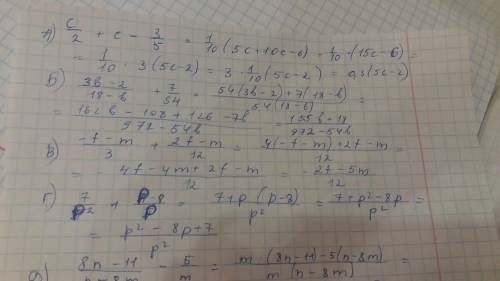 а) c/2 + c - 3/5 = 1/10 (5c + 10c - 6) = 1/10 · (15c - 6) =
= 1/10 · 3(5c-2) = 3 · 1/10 (5c-2) = 0,3(5c-2)
б) 3b-2/18-b + 7/54 = 54(3b-2)+7(18-b)/54(18-b) =
= 162b - 108 + 126 - 7b/972 - 54b = 155b + 18/972 - 54b
в) -f-m/3 + 2f-m/12 = 4(-f-m)+2f-m/12 =
= -4f-4m+2f-m/12 = -2f-5m/12
г) 7/p² + p-8/p = 7+p(p-8)/p² = 7+p²-8p/p² =
= p²-8p+7/p²
д) 8n-11/n-8m - 5/m = m(8n-11)-5(n-8m)/m(n-8m) =